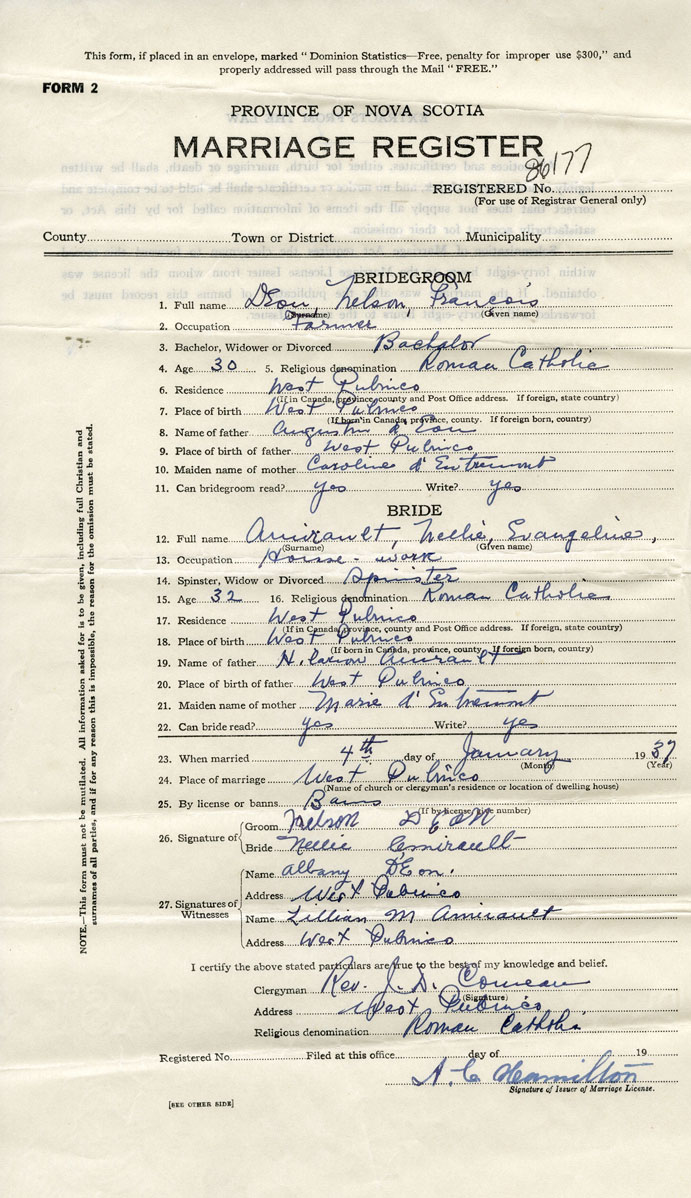 This form, if placed in an envelope, marked "Dominion Statistics—Free, penalty for improper use $300," and
properly addressed will pass through the Mail "FREE."
FORM 2
PROVINCE OF NOVA SCOTIA
MARRIAGE REGISTER
REGISTERED No. 86177
(For use of Registrar General only)
County Town or District Municipality
BRIDEGROOM
1. Full name Deon, Nelson, Francois
(Surname) (Given name)
2. Occupation Farmer
3. Bachelor, Widower or Divorced Bachelor
4. Age 30 5. Religious denomination Roman Catholic
6. Residence West Pubnico
(If in Canada, province, county and Post Office address. If foreign, state country)
7. Place of birth West Pubnico
(If born in Canada, province, county. If foreign born, country)
8. Name of father Augustin d'Eon
9. Place of birth of father West Pubnico
10. Maiden name of mother Caroline d'Entremont
11. Can bridegroom read? yes Write? yes
BRIDE
12. Full name Amirault, Nellie, Evangeline,
(Surname) (Given name)
13. Occupation House-work
14. Spinster, Widow or Divorced Spinster
15. Age 32 16. Religious denomination Roman Catholic
17. Residence West Pubnico
(If in Canada, province, county and Post Office address. If foreign, state country)
18. Place of birth West Pubnico
(If born in Canada, province, county. If foreign born, country)
19. Name of father Amirault
20. Place of birth of father West Pubnico
21. Maiden name of mother Marie d'Entremont
22. Can bride read? yes Write? yes
23. When married 4th day of January 1937
(Month) (Year)
24. Place of marriage West Pubnico
(Name of church or clergyman's residence or location of dwelling house)
25. By license or banns Bans
(If by license, give number)
26. Signature of
Groom Nelson DEON
Bride Nellie Amirault
27. Signatures of Witnesses
Name Albany D'Eon.
Address West Pubnico
Name Lillian M Amirault
Address West Pubnico
I certify the above stated particulars are true to the best of my knowledge and belief.
Clergyman Rev. J. D. Comeau
(Signature)
Address West Pubnico
Religious denomination Roman Catholic
Registered No. Filed at this office day of 19
A. C Hamilton
Signature of Issuer of Marriage License.
[SEE OTHER SIDE]
NOTE.—This form must not be mutilated. All information asked for is to be given, including full Christian and
surnames of all parties, and if for any reason this is impossible, the reason for the omission must be stated.